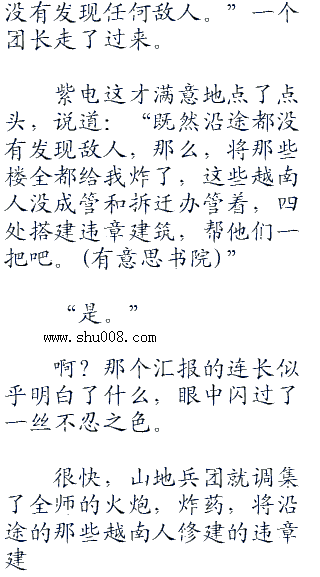 没有发现任何敌人。”一个
团长走了过来。
紫电这才满意地点了点
头，说道：“既然沿途都没
有发现敌人，那么，将那些
楼全都给我炸了，这些越南
人没成管和拆迁办管着，四
处搭建违章建筑，帮他们一
把吧。(有意思书院)”
“是。”
www.shu008.com
啊？那个汇报的连长似
乎明白了什么，眼中闪过了
一丝不忍之色。
很快，山地兵团就调集
了全师的火炮，炸药，将沿
途的那些越南人修建的违章
建